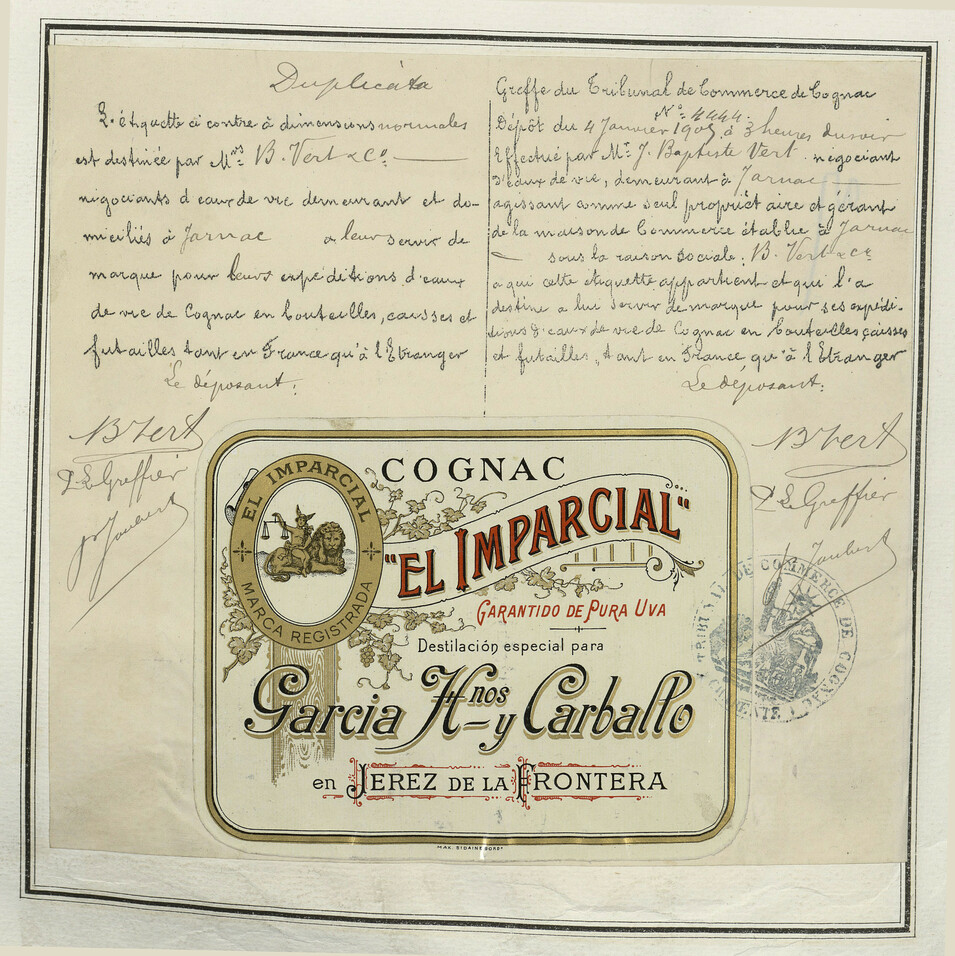 Duplicata
L'étiquette ci contre à dimensions normales
est destinée par Mrs B. Vert & Co.
négociants d'eaux de vie demeurant et do-
miciliés à Jarnac a leur servir de
marque pour leurs expéditions d'eaux
de vie de Cognac en bouteilles, caisses et
futailles tant en France qu'à l'Etranger
Le déposant:
B Vert
P. Le Greffier
Joubert
Greffe du Tribunal de Commerce de Cognac
No. 4444.
Dépôt du 4 Janvier 1905 à 3 heures du soir
Effectué par Mr. J. Baptiste Vert négociant
d'eaux de vie, demeurant à Jarnac
agissant comme seul propriétaire et gérant
de la maison de Commerce établie à Jarnac
sous la raison sociale: B. Vert & Co
a qui cette étiquette appartient et qui l'a
destine a lui servir de marque pour ses expédi-
tions d'eaux de vie de Cognac en bouteilles caisses
et futailles, tant en France qu'à l'Etranger
Le déposant:
B Vert
P. Le Greffier
Joubert
TRIBUNAL DE COMMERCE DE COGNAC
CHARENTE
EL IMPARCIAL
MARCA REGISTRADA
COGNAC
"EL IMPARCIAL"
GARANTIDO DE PURA UVA
Destilación especial para
Garcia Hnos y Carballo
en JEREZ DE LA FRONTERA